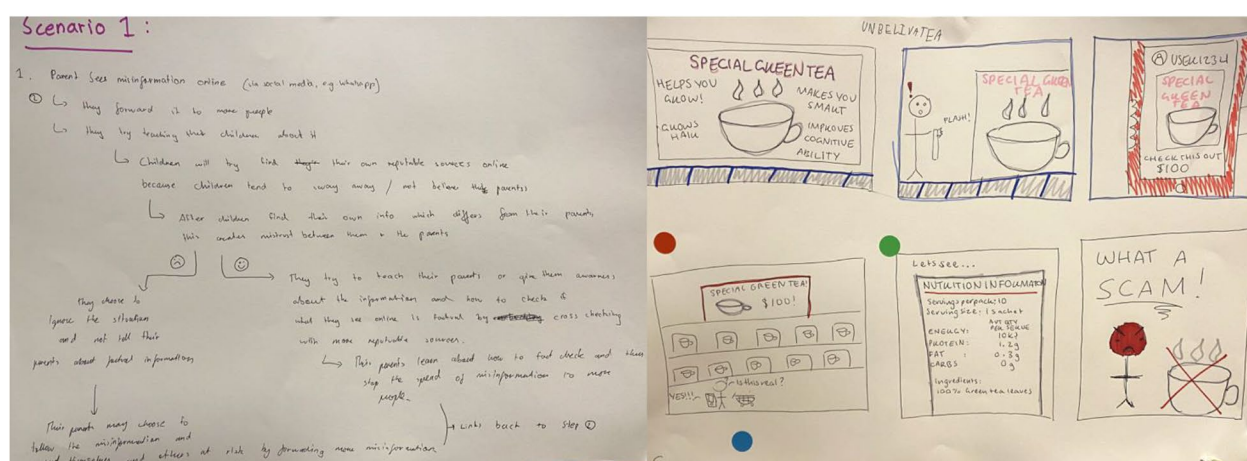 Scenario 1:
1. Parent sees misinformation online (via social media, e.g. whatsapp)
① ↳ They forward it to more people
↳ They try teaching their children about it
↳ Children will try find their own reputable sources online
because children tend to sway away / not believe their parents
↳ After children find their own info which differs from their parents,
this creates mistrust between them + the parents
They choose to
ignore the situation
and not tell their
parents about factual information
They try to teach their parents or give them awareness
about the information and how to check if
what they see online is factual by cross checking
with more reputable sources.
↳ This parents learn about how to fact check and thus
stop the spread of misinformation to more
people.
Their parents may choose to
follow the misinformation and
themselves and others at risk by forwarding more misinformation
Links back to step ①
UNBELIVATEA
SPECIAL GREEN TEA
HELPS YOU
GROW!
GROWS
HAIR
MAKES YOU
SMART
IMPROVES
COGNITIVE
ABILITY
!
FLASH!
SPECIAL GREEN
TEA
USER1234
SPECIAL
GREEN
TEA
CHECK THIS OUT
$100
SPECIAL GREEN TEA!
$100!
Is this real?
YES!!!
Lets see...
NUTRITION INFORMATION
Servings per pack: 10
Serving size: 1 sachet
AVT QTY
PER SERVE
ENERGY: 10kJ
PROTEIN: 1.2g
FAT : 0.3g
CARBS 0g
Ingredients:
100% Green tea leaves
WHAT A
SCAM!